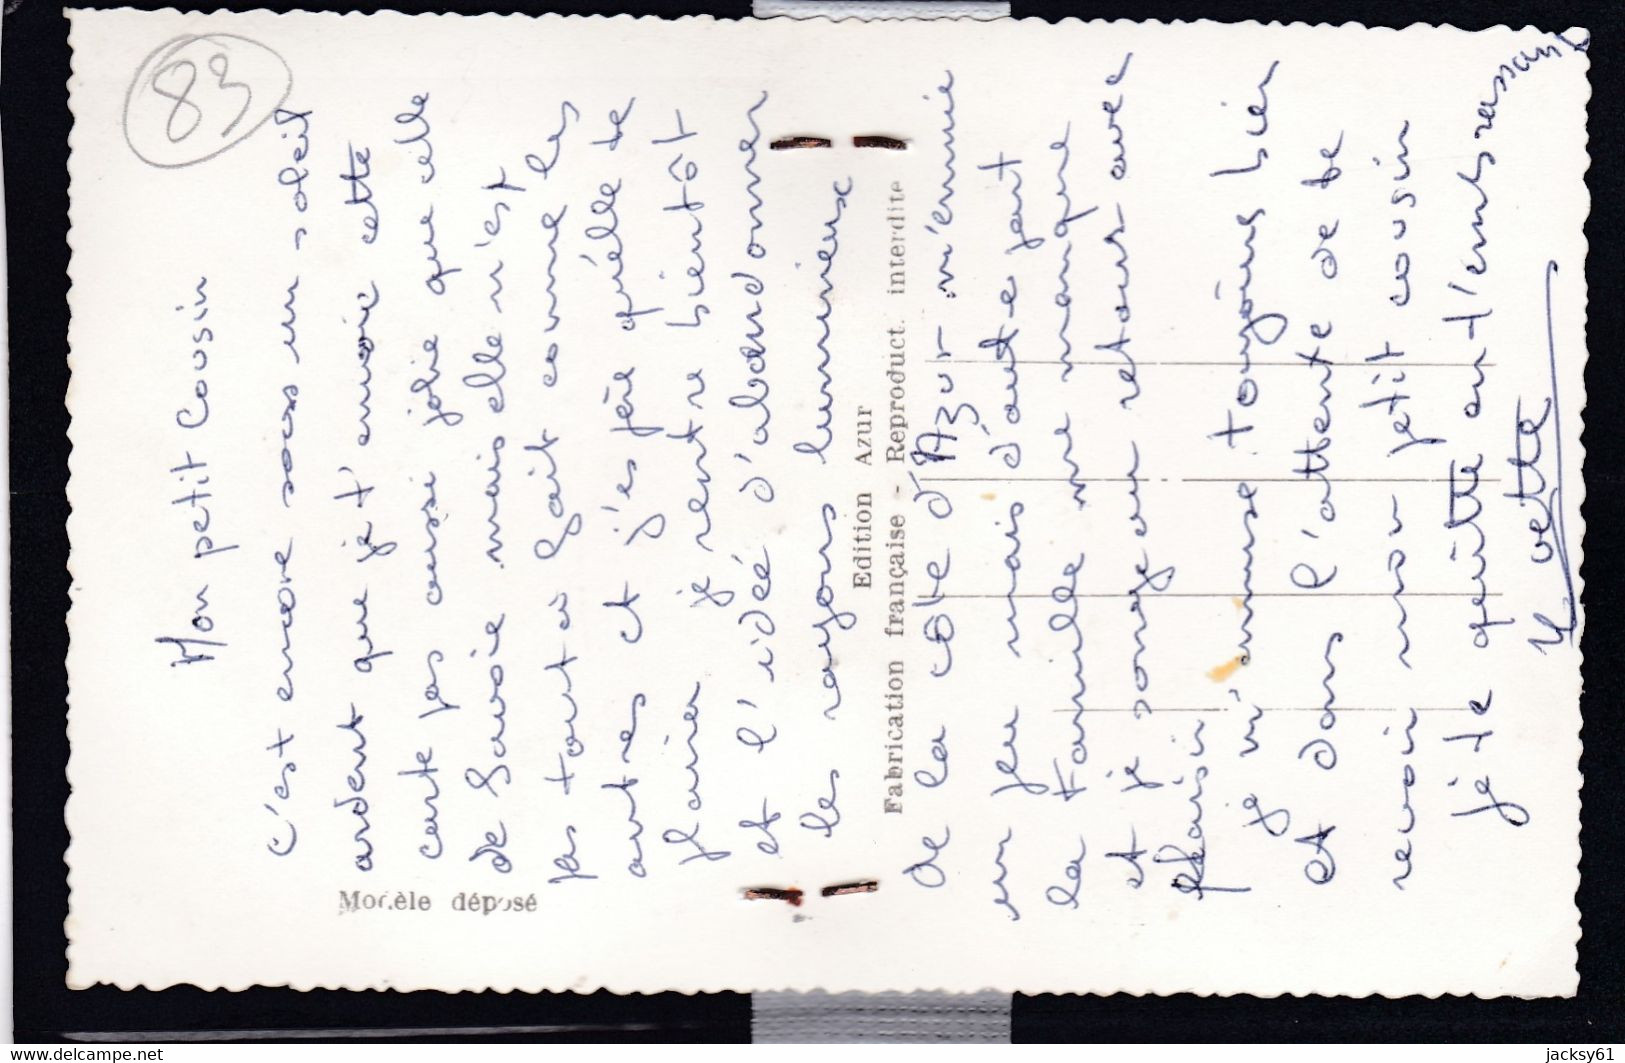 83
Mon petit Cousin
C'est encore sous un soleil
ardent que je t'envoie cette
carte pas aussi jolie que celle
de Savoie mais elle n'est
pas tout à fait comme les
autres et j'espère qu'elle te
plaira je rentre bientôt
et l'idée d'abandonner
les rayons lumineux
De la côte d'Azur m'ennuie
un peu mais d'autre part
la famille me manque
et je songe au retour avec
plaisir
je m'amuse toujours bien
et dans l'attente de te
revoir mon petit cousin
je te quitte en t'embrassant
Yvette
Modèle déposé
Edition Azur
Fabrication française - Reproduct. interdite
www.delcampe.net
jacksy61